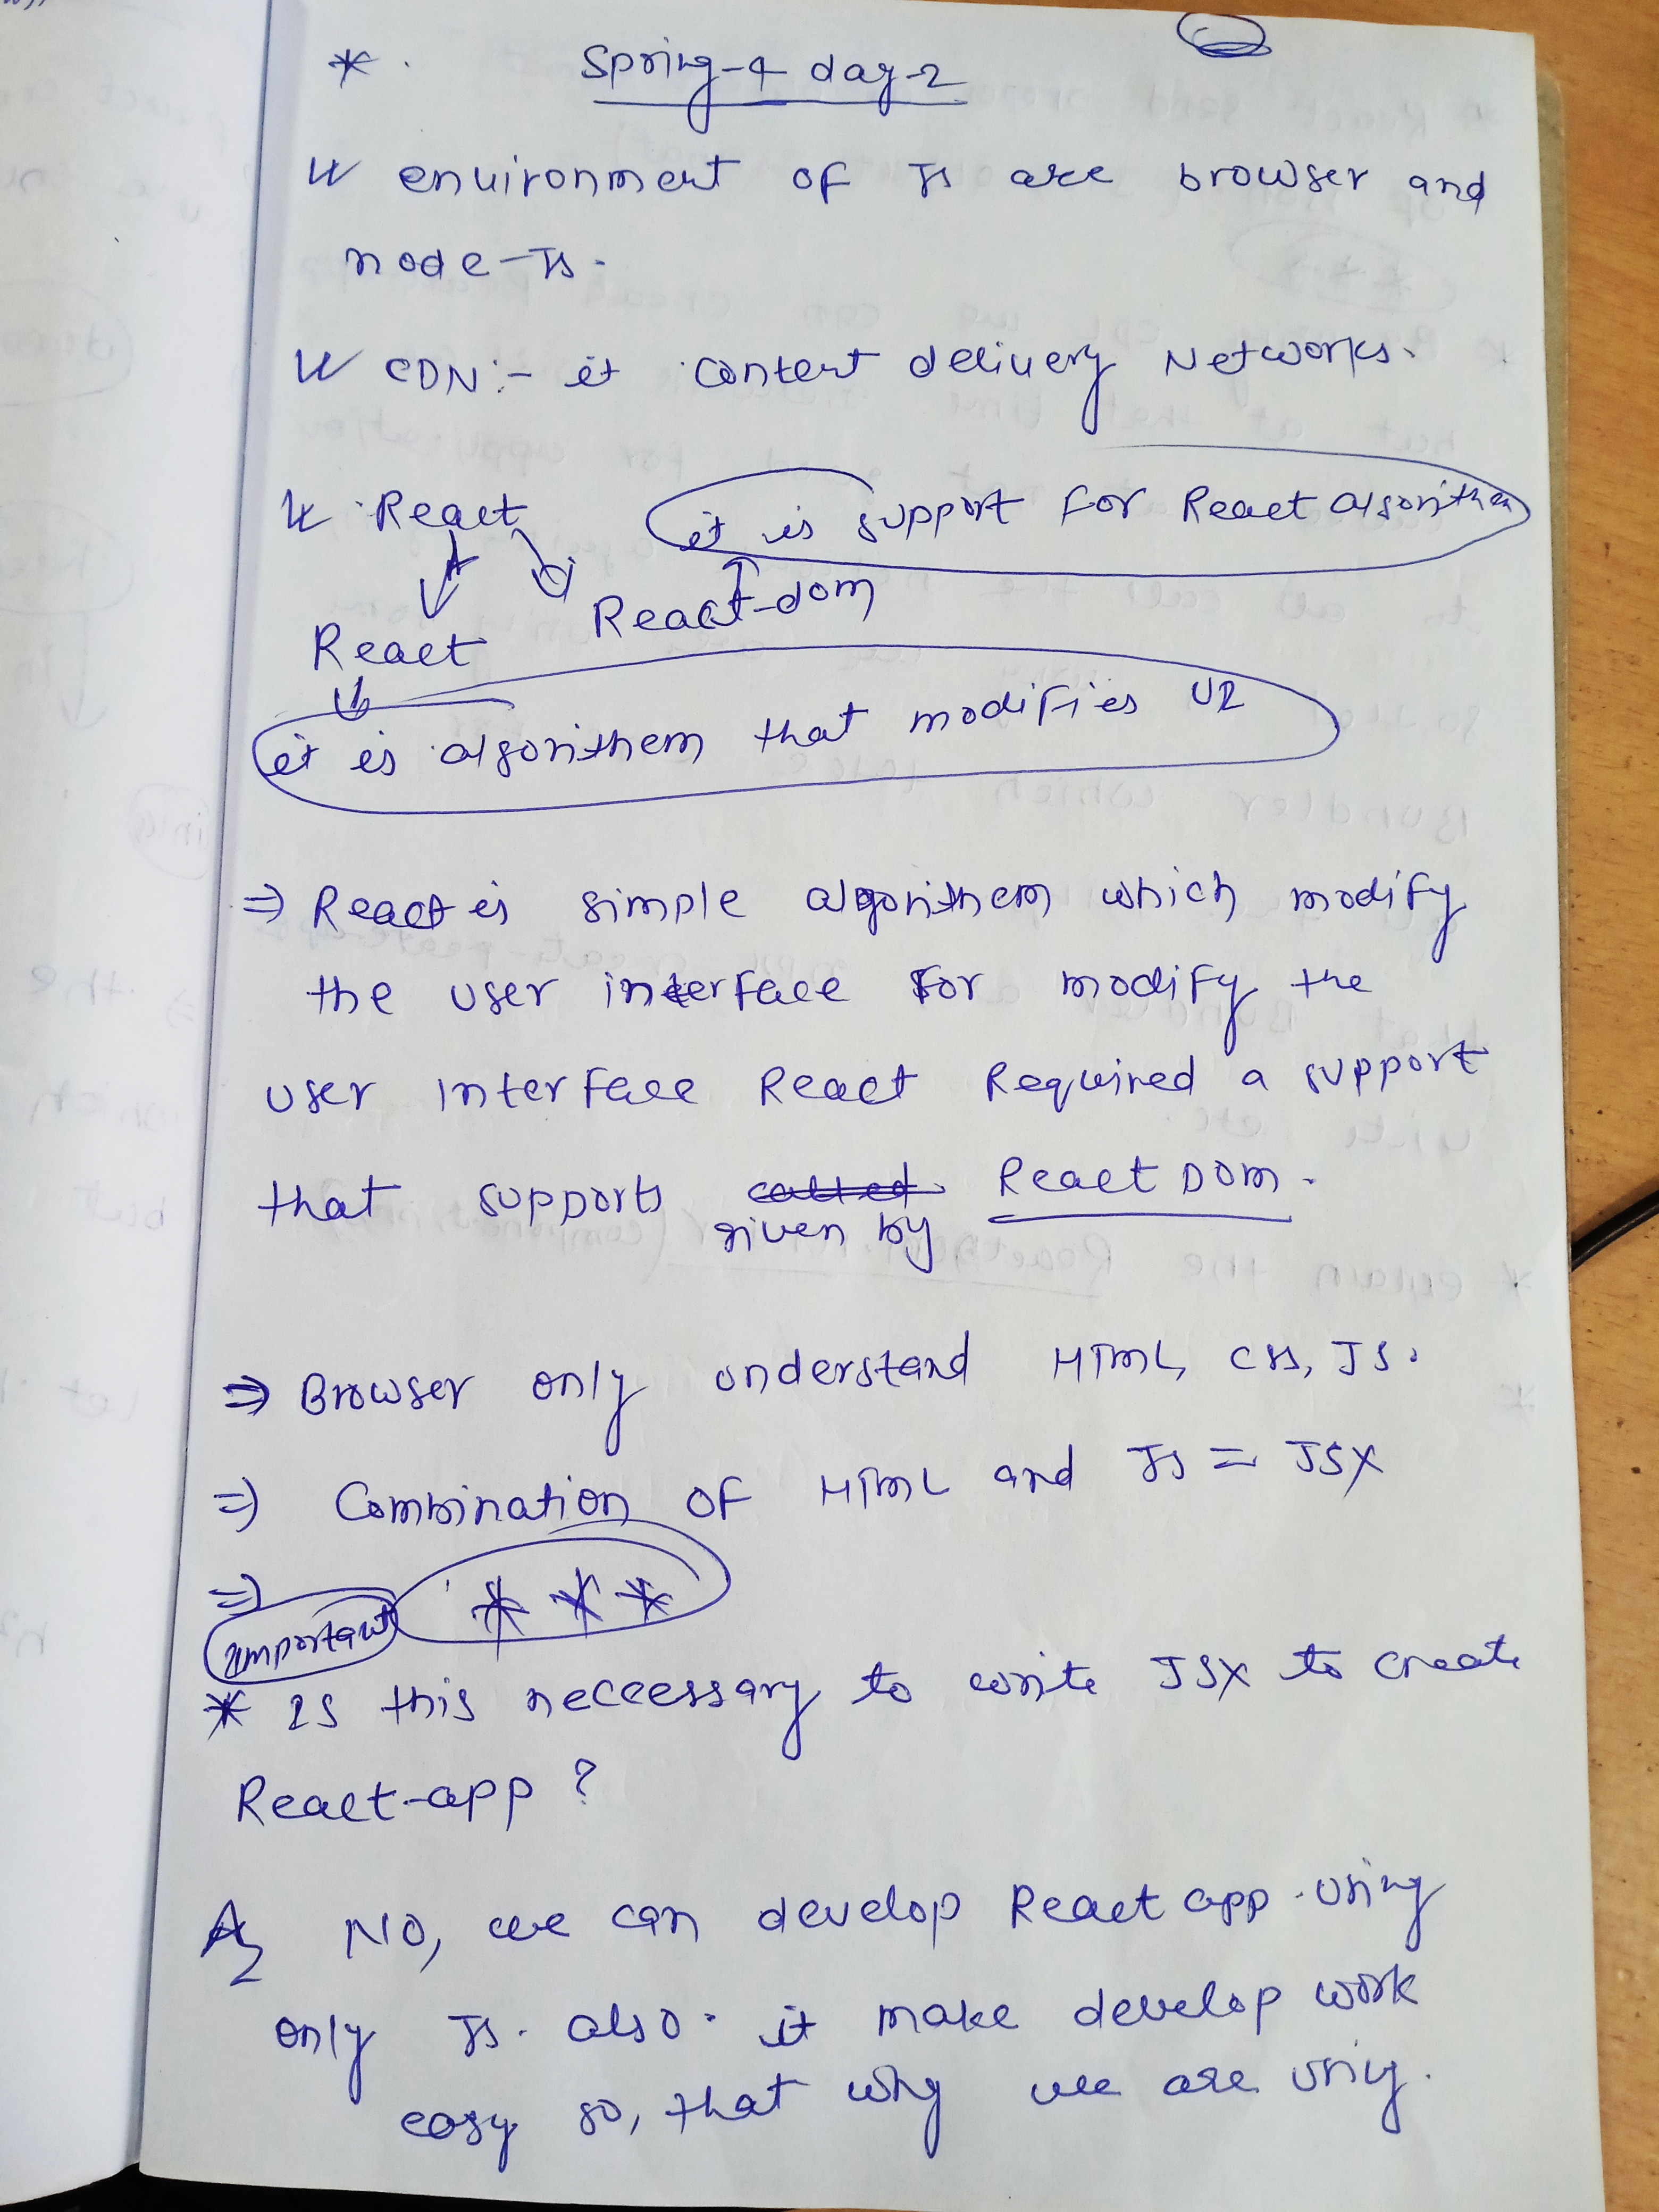 * . Spring-4 day-2
environment of Js are browser and
node-Js.
CDN :- it content delivery Networks.
React
it is support for React algorithem
React-dom
React
it is algorithem that modifies UI
⇒ React is simple algorithem which modify
the user interface for modify the
user interface React Required a support
that supports called React DOM.
given by
⇒ Browser only understand HTML, CSS, JS.
⇒ Combination of HTML and JS = JSX
⇒ * * *
Important
* Is this neccessary to write JSX to create
React-app ?
A, NO, we can develop React app using
only Js. also. it make develop work
easy so, that why we are using.